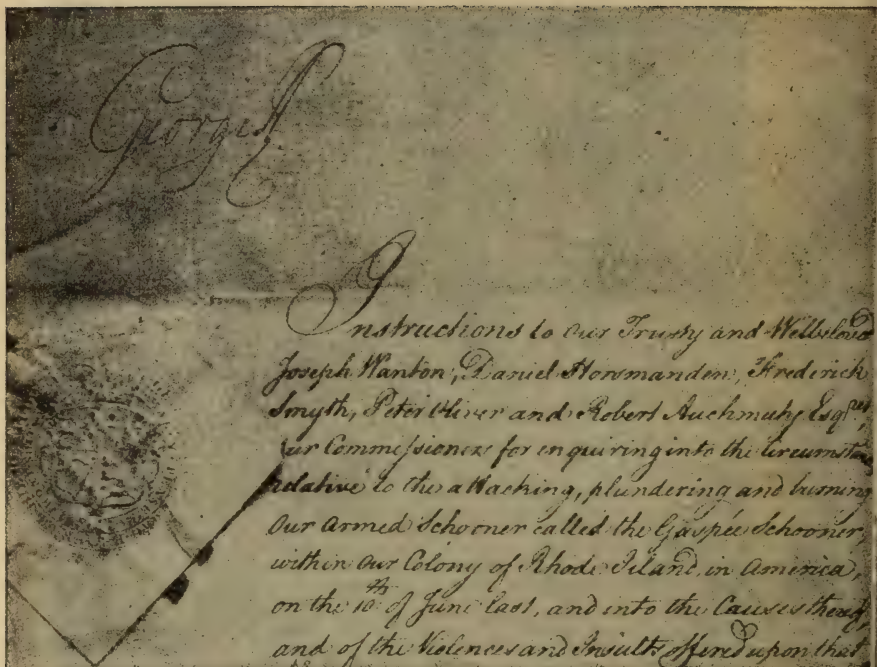 George R
Instructions to Our Trusty and Welbeloved
Joseph Wanton, Daniel Horsmanden, Frederick
Smyth, Peter Oliver and Robert Auchmuty Esqres,
Our Commissioners for enquiring into the Circumstan
relative to the attacking, plundering and burning
Our Armed Schooner called the Gaspée Schooner,
within Our Colony of Rhode Island, in America,
on the 10th of June last, and into the Causes thereof,
and of the Violences and Insults offered upon that